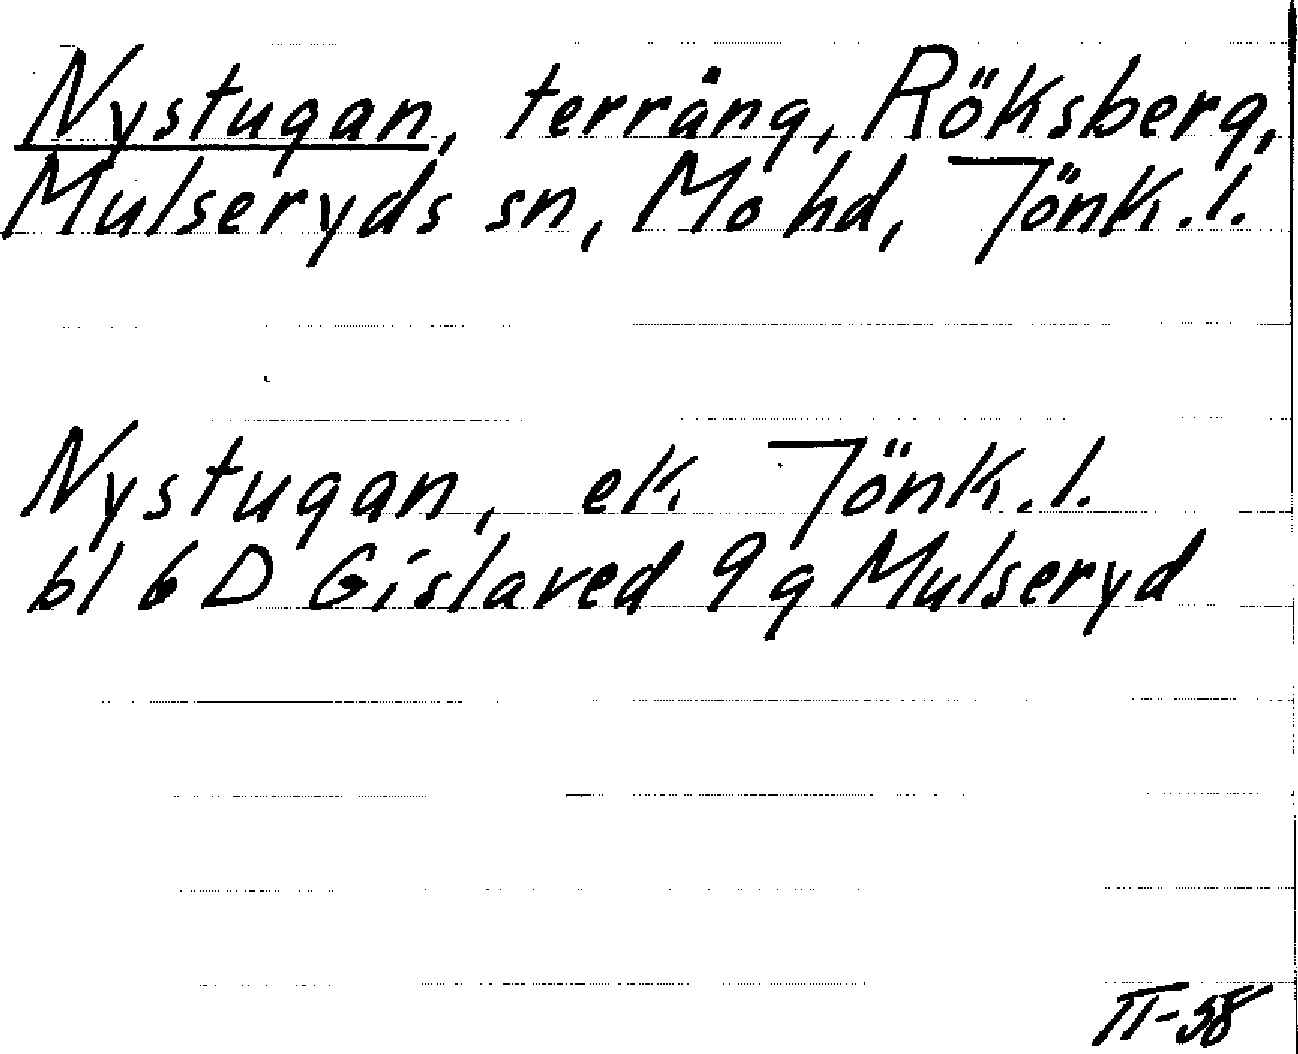 Nystugan, terräng, Röksberg,
Mulseryds sn, Mo hd, Jönk.l.
Nystugan, ek Jönk.l.
bl 6 D Gislaved 9g Mulseryd
II-58